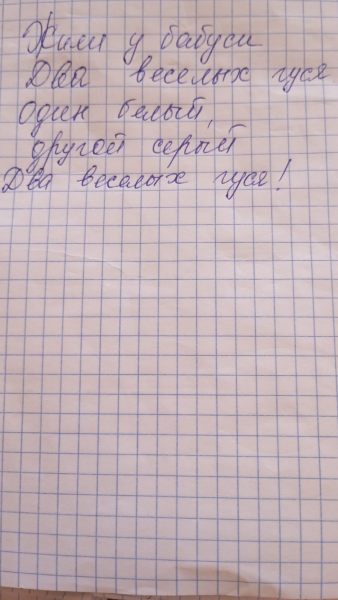 Жили у бабуси
Два веселых гуся
Один белый,
другой серый
Два веселых гуся!